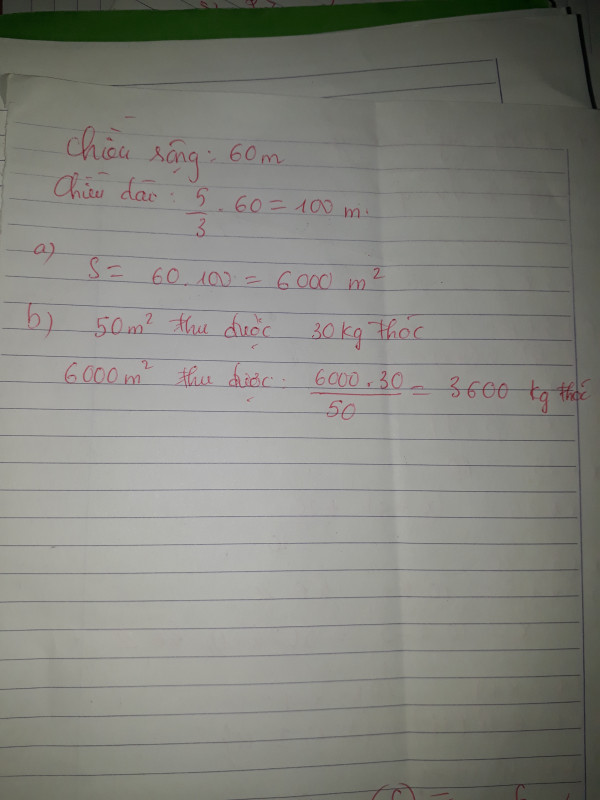 Chiều rộng: 60m
Chiều dài: 5/3 . 60 = 100 m.
a)
S = 60.100 = 6000 m²
b) 50m² thu được 30kg thóc
6000m² thu được: 6000.30/50 = 3600 kg thóc